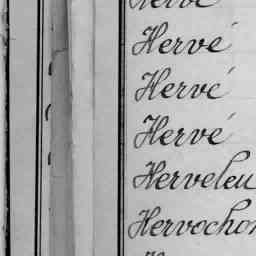 Hervé
Hervé
Hervé
Hervé
Herveleu
Hervochon